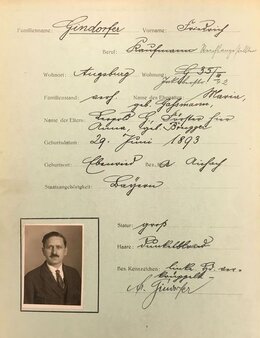 Familienname: Gindorfer Vorname: Friedrich
Beruf: Kaufmann
Wohnort: Augsburg Wohnung:
Familienstand: verh Name des Ehegatten: Maria,
geb.
Name der Eltern: Leopold G. Förster
Anna, geb.
Geburtsdatum: 29. Juni 1893
Geburtsort: Ebenried Bez.-A. Aichach
Staatsangehörigkeit: Bayern
Statur: groß
Haare: dunkelblond
Bes. Kennzeichen: linke Hd. ver-
krüppelt
Gindorfer